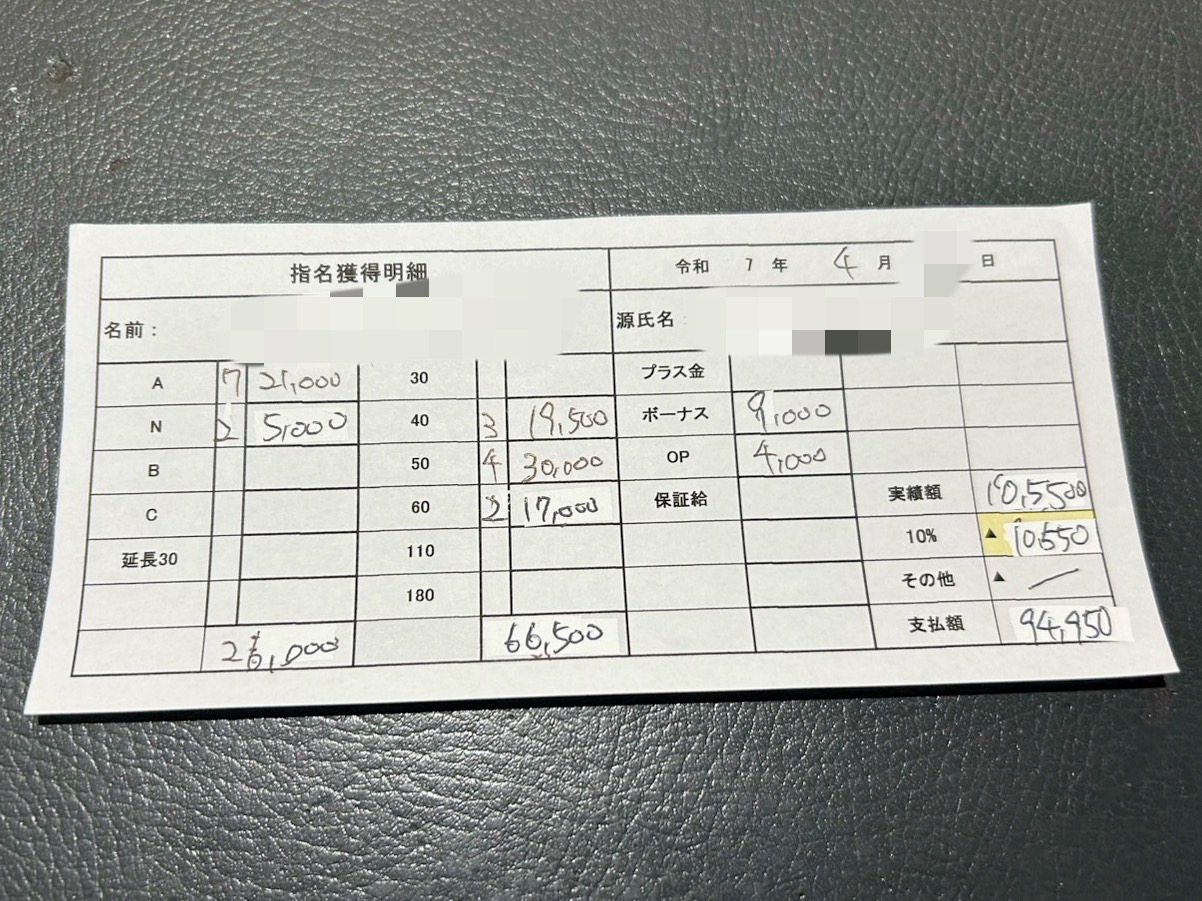 指名獲得明細 令和 7 年 4 月 日
名前： 源氏名
A 7 21,000 30 プラス金
N 2 5,000 40 3 19,500 ボーナス 9,000
B 50 4 30,000 OP 4,000
C 60 2 17,000 保証給 実績額 105,500
延長30 110 10% ▲ 10,550
180 その他 ▲
26,000 66,500 支払額 94,950